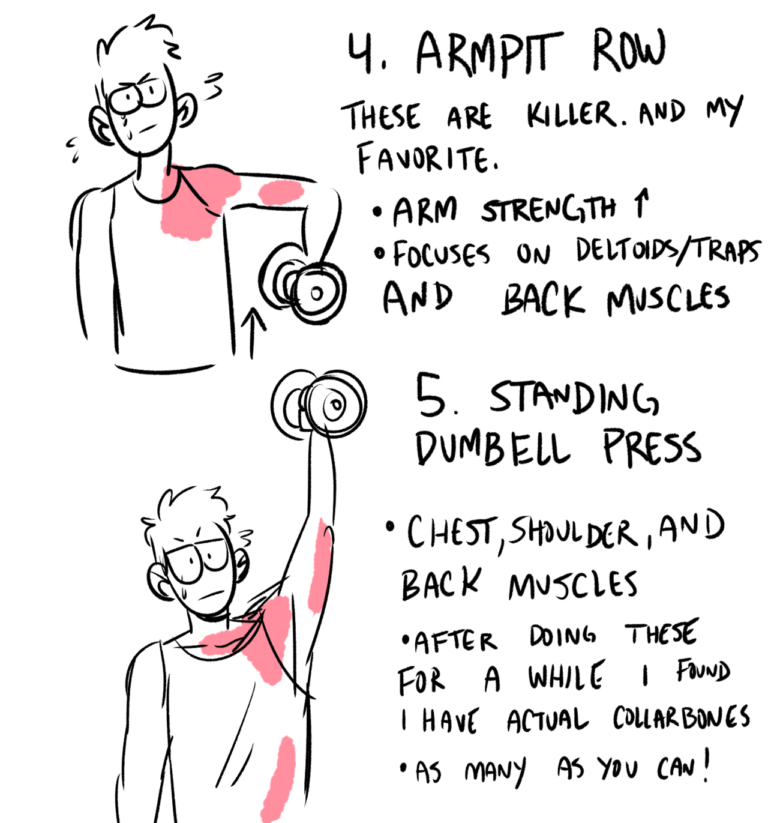 4. ARMPIT ROW
THESE ARE KILLER. AND MY
FAVORITE.
• ARM STRENGTH ↑
• FOCUSES ON DELTOIDS/TRAPS
AND BACK MUSCLES
5. STANDING
DUMBELL PRESS
• CHEST, SHOULDER, AND
BACK MUSCLES
• AFTER DOING THESE
FOR A WHILE I FOUND
I HAVE ACTUAL COLLARBONES
• AS MANY AS YOU CAN!